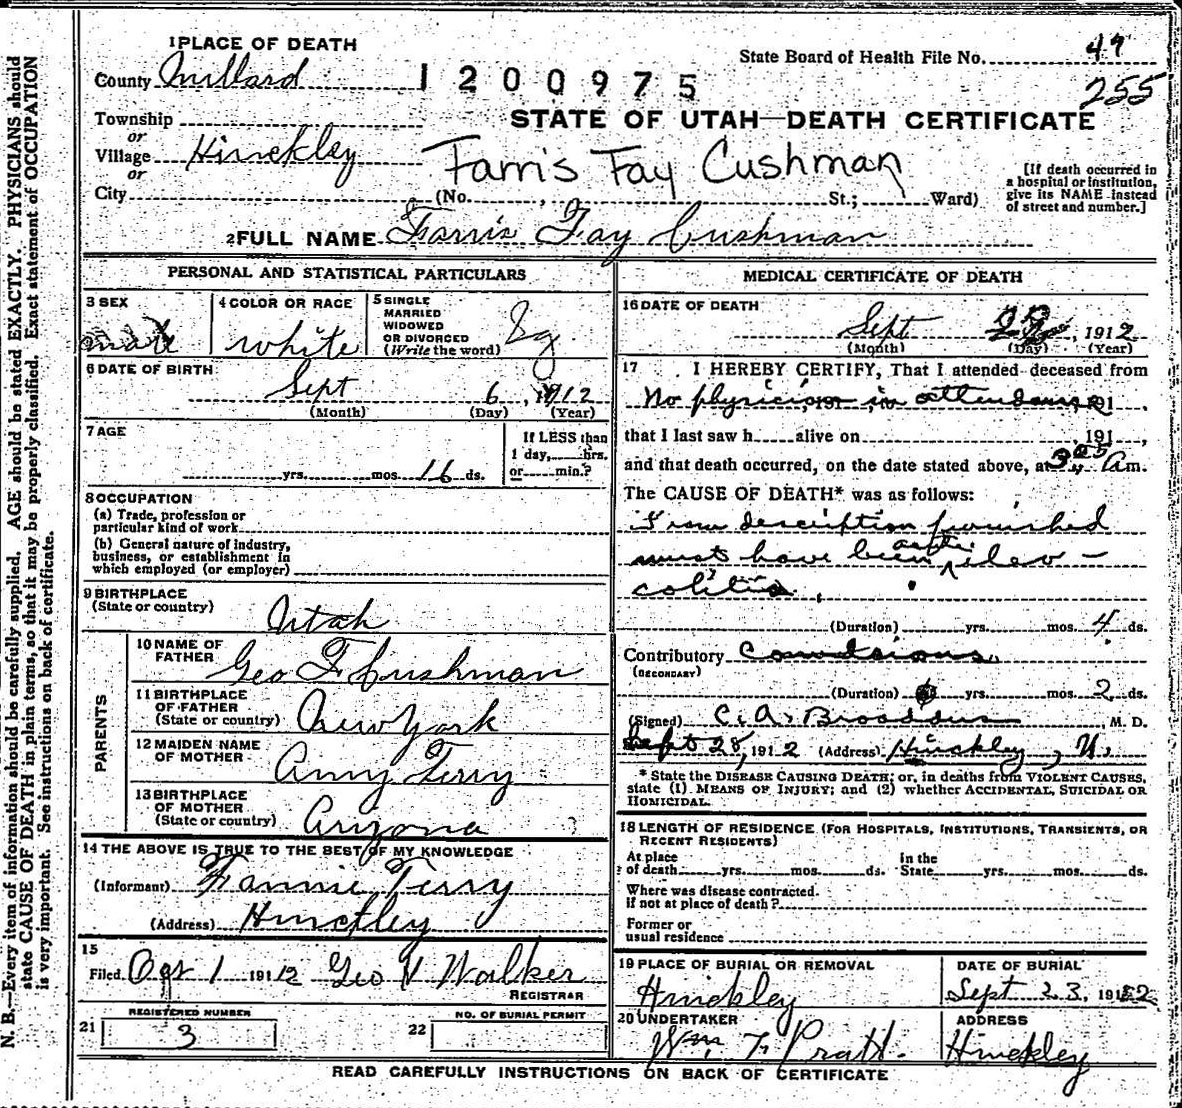 1 PLACE OF DEATH
State Board of Health File No. 49
County Millard
1 2 0 0 9 7 5
255
Township
STATE OF UTAH—DEATH CERTIFICATE
or
Village Hinckley
Farris Fay Cushman
or
City
(No. , St.; Ward)
[If death occurred in
a hospital or institution,
give its NAME instead
of street and number.]
2 FULL NAME Farris Fay Cushman
PERSONAL AND STATISTICAL PARTICULARS
3 SEX
male
4 COLOR OR RACE
white
5 SINGLE
MARRIED
WIDOWED
OR DIVORCED
(Write the word)
6 DATE OF BIRTH
Sept 6, 1912
(Month) (Day) (Year)
7 AGE
yrs. mos. 16 ds.
If LESS than
1 day, hrs.
or min.?
8 OCCUPATION
(a) Trade, profession or
particular kind of work
(b) General nature of industry,
business, or establishment in
which employed (or employer)
9 BIRTHPLACE
(State or country)
Utah
PARENTS
10 NAME OF
FATHER
Geo F Cushman
11 BIRTHPLACE
OF FATHER
(State or country)
New York
12 MAIDEN NAME
OF MOTHER
Amy Terry
13 BIRTHPLACE
OF MOTHER
(State or country)
Aryona
14 THE ABOVE IS TRUE TO THE BEST OF MY KNOWLEDGE
(Informant) Fannie Terry
(Address) Hinckley
15
Filed 1 1912 Geo V Walker
REGISTRAR
21
REGISTERED NUMBER
3
22
NO. OF BURIAL PERMIT
MEDICAL CERTIFICATE OF DEATH
16 DATE OF DEATH
Sept , 1912
(Month) (Day) (Year)
17 I HEREBY CERTIFY, That I attended deceased from
No physician in attendance 191 ,
that I last saw h alive on , 191 ,
and that death occurred, on the date stated above, at Am.
The CAUSE OF DEATH* was as follows:
From description furnished
must have been ileo-
colitis
(Duration) yrs. mos. 4 ds.
Contributory Convulsions
(SECONDARY)
(Duration) yrs. mos. 2 ds.
(Signed) C. A. Broaddus M. D.
Sept 28, 1912 (Address) Hinckley, U.
* State the DISEASE CAUSING DEATH; or, in deaths from VIOLENT CAUSES,
state (1) MEANS OF INJURY; and (2) whether ACCIDENTAL, SUICIDAL OR
HOMICIDAL.
18 LENGTH OF RESIDENCE (FOR HOSPITALS, INSTITUTIONS, TRANSIENTS, OR
RECENT RESIDENTS)
At place
of death yrs. mos. ds.
In the
State yrs. mos. ds.
Where was disease contracted
if not at place of death?
Former or
usual residence
19 PLACE OF BURIAL OR REMOVAL
Hinckley
DATE OF BURIAL
Sept 23, 1912
20 UNDERTAKER
Wm. F. Pratt.
ADDRESS
Hinckley
READ CAREFULLY INSTRUCTIONS ON BACK OF CERTIFICATE
N. B.—Every item of information should be carefully supplied. AGE should be stated EXACTLY. PHYSICIANS should
state CAUSE OF DEATH in plain terms, so that it may be properly classified. Exact statement of OCCUPATION
is very important. See instructions on back of certificate.